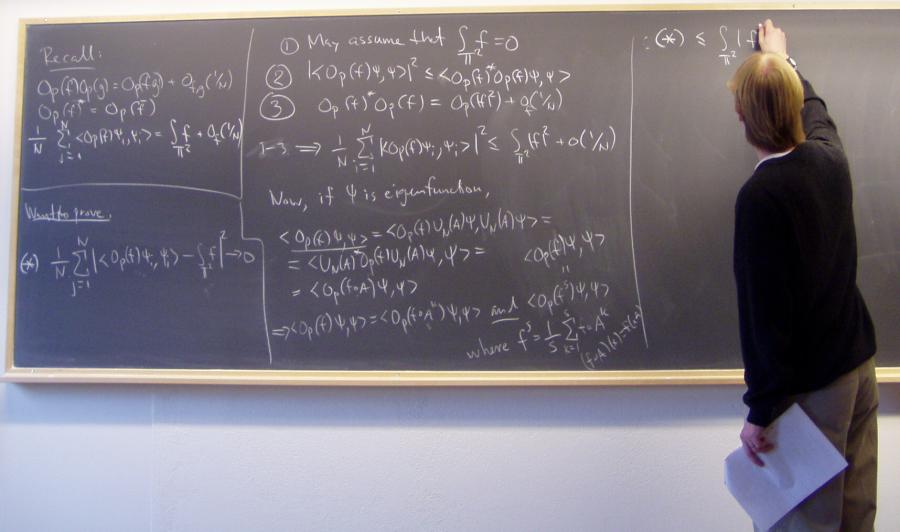 Recall:
Op(f)Op(g) = Op(fg) + O_{f,g}(1/N)
Op(f)* = Op(f̄)
1/N ∑_{j=1}^{N} <Op(f)Ψ_i,Ψ_i> = ∫_{Π²} f + O_f(1/N)
Want to prove.
(*) 1/N ∑_{j=1}^{N} |<Op(f)Ψ_i,Ψ_i> - ∫_{Π²} f|² → 0
① May assume that ∫_{Π²} f = 0
② |<Op(f)Ψ,Ψ>|² ≤ <Op(f)*Op(f)Ψ,Ψ>
③ Op(f)* Op(f) = Op(|f|²) + O_f(1/N)
1-3 ⟹ 1/N ∑_{i=1}^{N} |<Op(f)Ψ_i,Ψ_i>|² ≤ ∫_{Π²} |f|² + O(1/N)
Now, if Ψ is eigenfunction,
<Op(f)Ψ,Ψ> = <Op(f)U_N(A)Ψ,U_N(A)Ψ> =
= <U_N(A)*Op(f)U_N(A)Ψ,Ψ> =
= <Op(f∘A)Ψ,Ψ>
⟹ <Op(f)Ψ,Ψ> = <Op(f∘A^k)Ψ,Ψ> and
<Op(f)Ψ,Ψ>
=
<Op(f^S)Ψ,Ψ>
where f^S = 1/S ∑_{k=1}^{S} f∘A^k
(f∘A)(x)=f(xA)
: (*) ≤ ∫_{Π²} |f